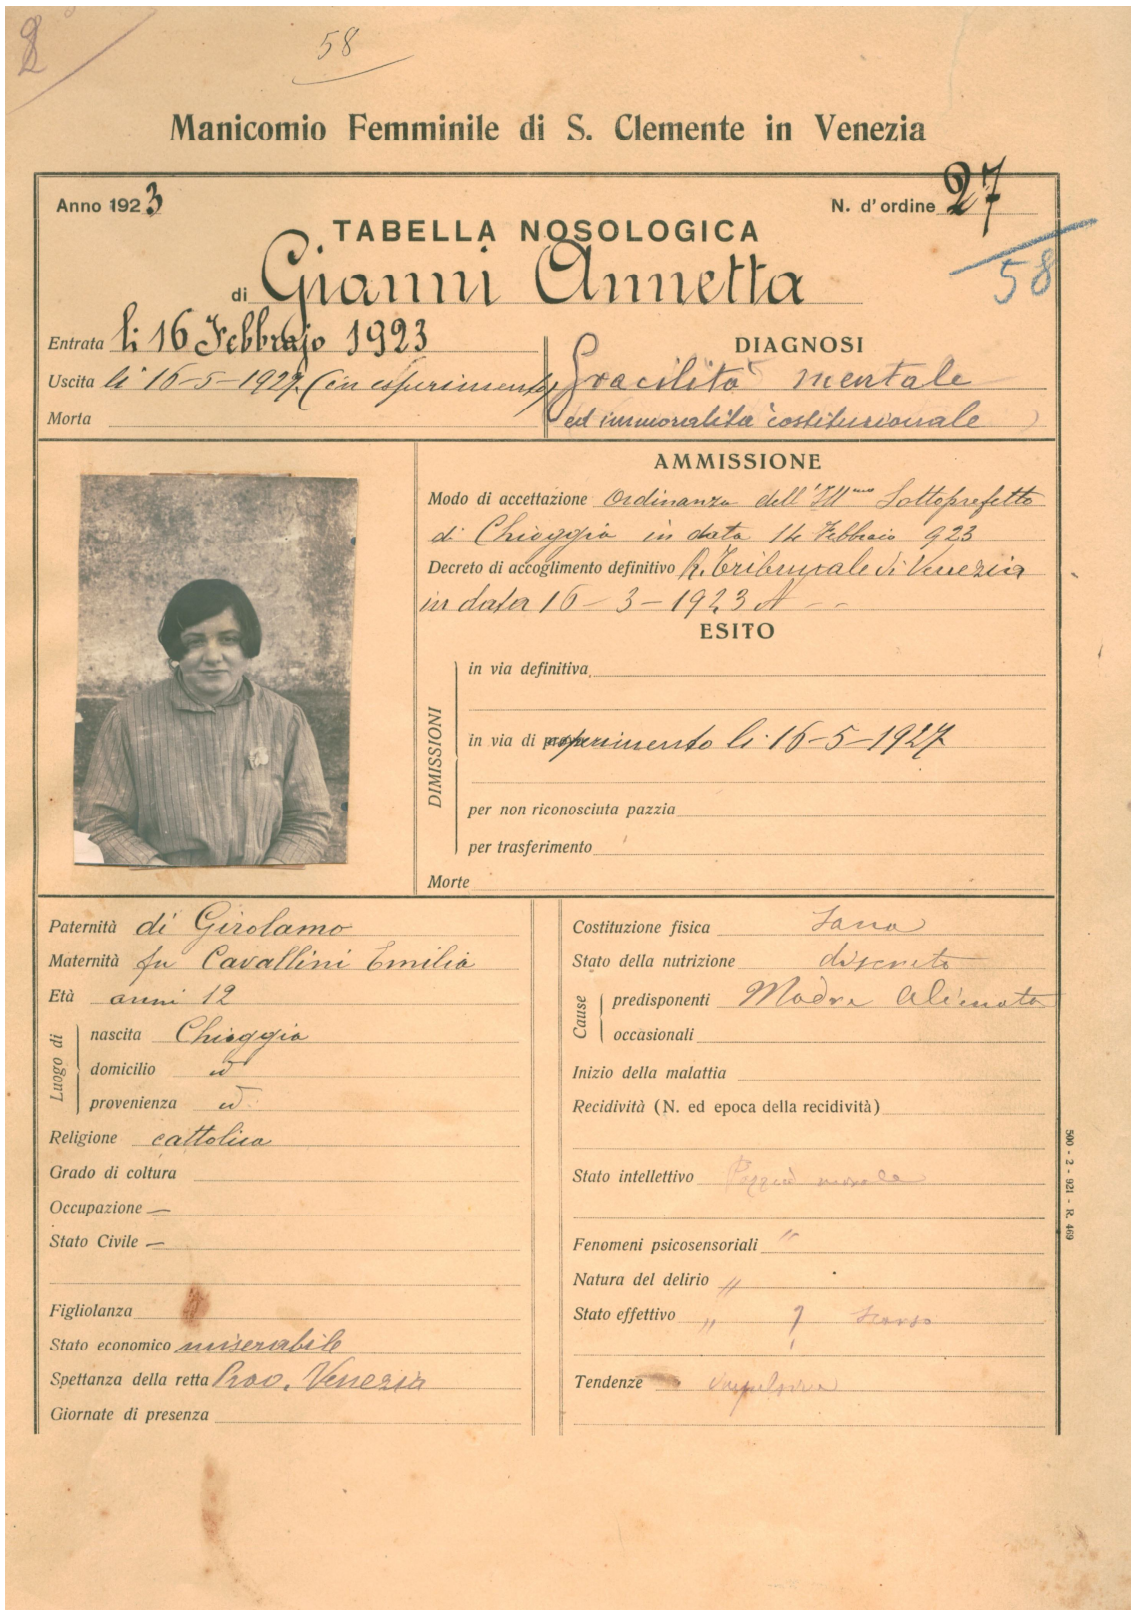 58
Manicomio Femminile di S. Clemente in Venezia
Anno 1923
N. d'ordine 27
58
TABELLA NOSOLOGICA
di Gianni Annetta
Entrata li 16 Febbrajo 1923
Uscita li 16-5-1927 (in esperimento)
Morta
DIAGNOSI
Gracilità mentale
ed immoralità costituzionale
AMMISSIONE
Modo di accettazione Ordinanza dell'Ill.mo Sottoprefetto
di Chioggia in data 14 Febbraio 923
Decreto di accoglimento definitivo R. Tribunale di Venezia
in data 16-3-1923
ESITO
DIMISSIONI
in via definitiva
in via di esperimento li 16-5-1927
per non riconosciuta pazzia
per trasferimento
Morte
Paternità di Girolamo
Maternità fu Cavallini Emilia
Età anni 12
Luogo di
nascita Chioggia
domicilio id
provenienza id
Religione cattolica
Grado di coltura
Occupazione —
Stato Civile —
Figliolanza
Stato economico miserabile
Spettanza della retta Prov. Venezia
Giornate di presenza
Costituzione fisica Sana
Stato della nutrizione discreto
Cause
predisponenti Madre alienata
occasionali
Inizio della malattia
Recidività (N. ed epoca della recidività)
Stato intellettivo Pazzia morale
Fenomeni psicosensoriali "
Natura del delirio "
Stato effettivo " ?
Tendenze impulsive
500 - 2 - 921 - R. 469